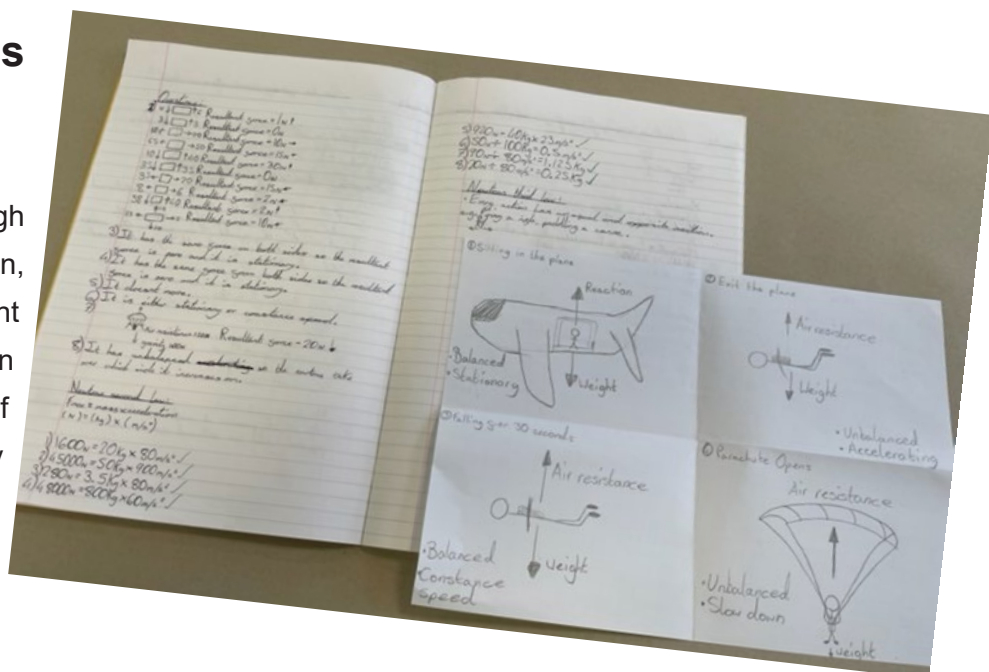 s
gh
n,
nt
n
f
Questions
Resultant force = 1N↑
Resultant force = 0N
Resultant force = 10N→
Resultant force = 15N
Resultant force = 30N↑
Resultant force = 0N
Resultant force = 15N
Resultant force = 2N
Resultant force = 2N↑
Resultant force = 10N
3) It has the same force on both sides so the resultant
force is zero and it is stationary.
4) It has the same force from both sides so the resultant
force is zero and it is stationary.
5) It doesnt move.
6) It is either stationary or constance speed.
7)
Air resistance Resultant force = 20N
8) It has unbalanced so the
Newtons second law:
Force = mass x acceleration
(N) = (kg) x (m/s²)
1) 1600N = 20kg x 80m/s² ✓
2) 45000N = 50kg x 900m/s² ✓
3) 280N = 3.5kg x 80m/s² ✓
4) 48000N = 800kg x 60m/s² ✓
5) 920N = 40kg x 23m/s² ✓
6) 50N ÷ 100kg = 0.5m/s² ✓
7) 90N ÷ 80m/s² = 1.125kg ✓
8) 20N ÷ 80m/s² = 0.25kg ✓
Newtons third law:
• Every action has an equal and opposite reaction.
① Sitting in the plane
Reaction
• Balanced
• Stationary
Weight
② Exit the plane
Air resistance
Weight
• Unbalanced
• Accelerating
③ Falling for 30 seconds
Air resistance
• Balanced
Constance
speed
weight
④ Parachute Opens
Air resistance
• Unbalanced
• Slow down
weight